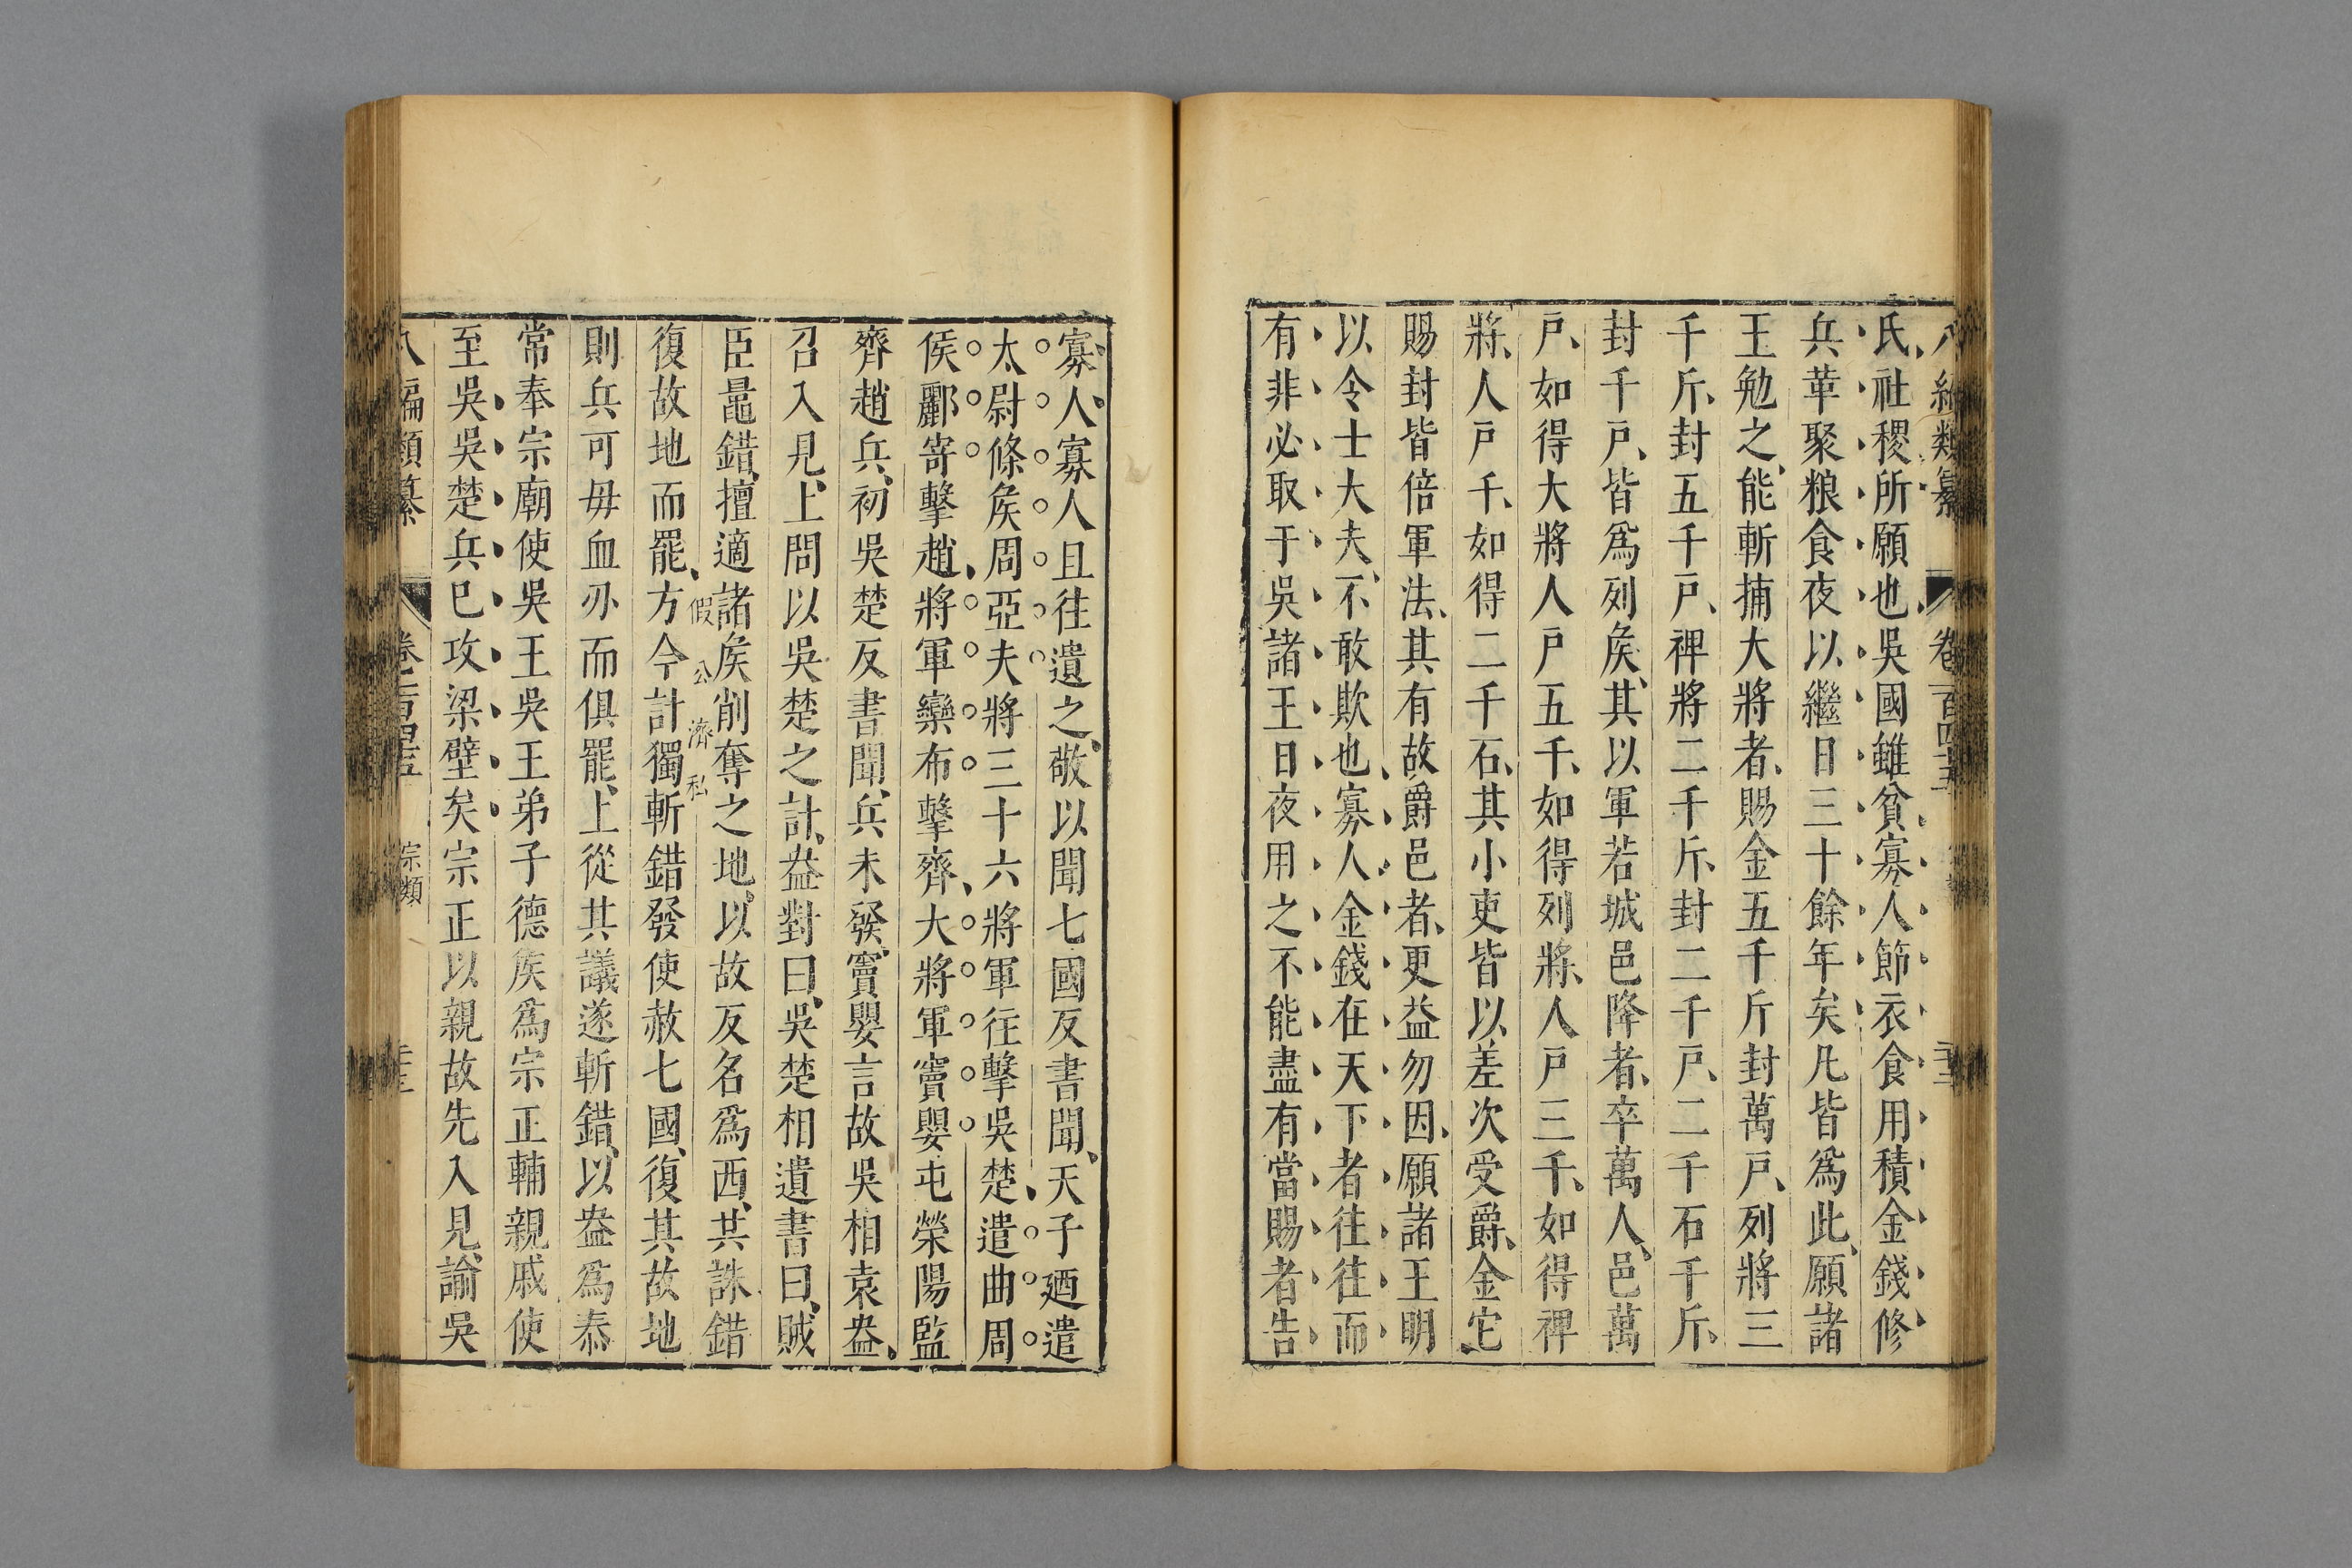 八編類纂 卷一百四十五
氏、社稷所願也、吳國雖貧、寡人節衣食用、積金錢修
兵革聚粮食夜以繼日三十餘年矣凡皆爲此、願諸
王勉之、能斬捕大將者、賜金五千斤封萬戸、列將三
千斤、封五千戸、裨將二千斤、封二千戸、二千石千斤、
封千戸、皆爲列矦、其以軍若城邑降者、卒萬人、邑萬
戸、如得大將人戸五千、如得列將、人戸三千、如得裨
將、人戸千、如得二千石、其小吏皆以差次受爵、金它
賜封皆倍軍法、其有故爵邑者、更益勿因、願諸王明
以令士大夫、不敢欺也、寡人金錢在天下者往往而
有非必取于吳諸王日夜用之不能盡有當賜者告
寡人、寡人且往遺之、敬以聞七國反書聞、天子廼遣
太尉條矦周亞夫將三十六將軍往擊吳楚、遣曲周
侯酈寄擊趙、將軍欒布擊齊、大將軍竇嬰屯榮陽監
齊趙兵、初吳楚反書聞、兵未發、竇嬰言故吳相袁盎、
召入見、上問以吳楚之計、盎對曰、吳楚相遺書曰、賊
臣鼂錯、擅適諸矦削奪之地、以故反名爲西、共誅錯
假公濟私
復故地而罷、方今計獨斬錯發使赦七國、復其故地
則兵可毋血刃而俱罷、上從其議遂斬錯、以盎爲泰
常奉宗廟使吳王吳王弟子德矦爲宗正輔親戚使
至吳、吳楚兵已攻梁壁矣宗正以親故先入見、諭吳
八編類纂 卷一百四十五 宗類